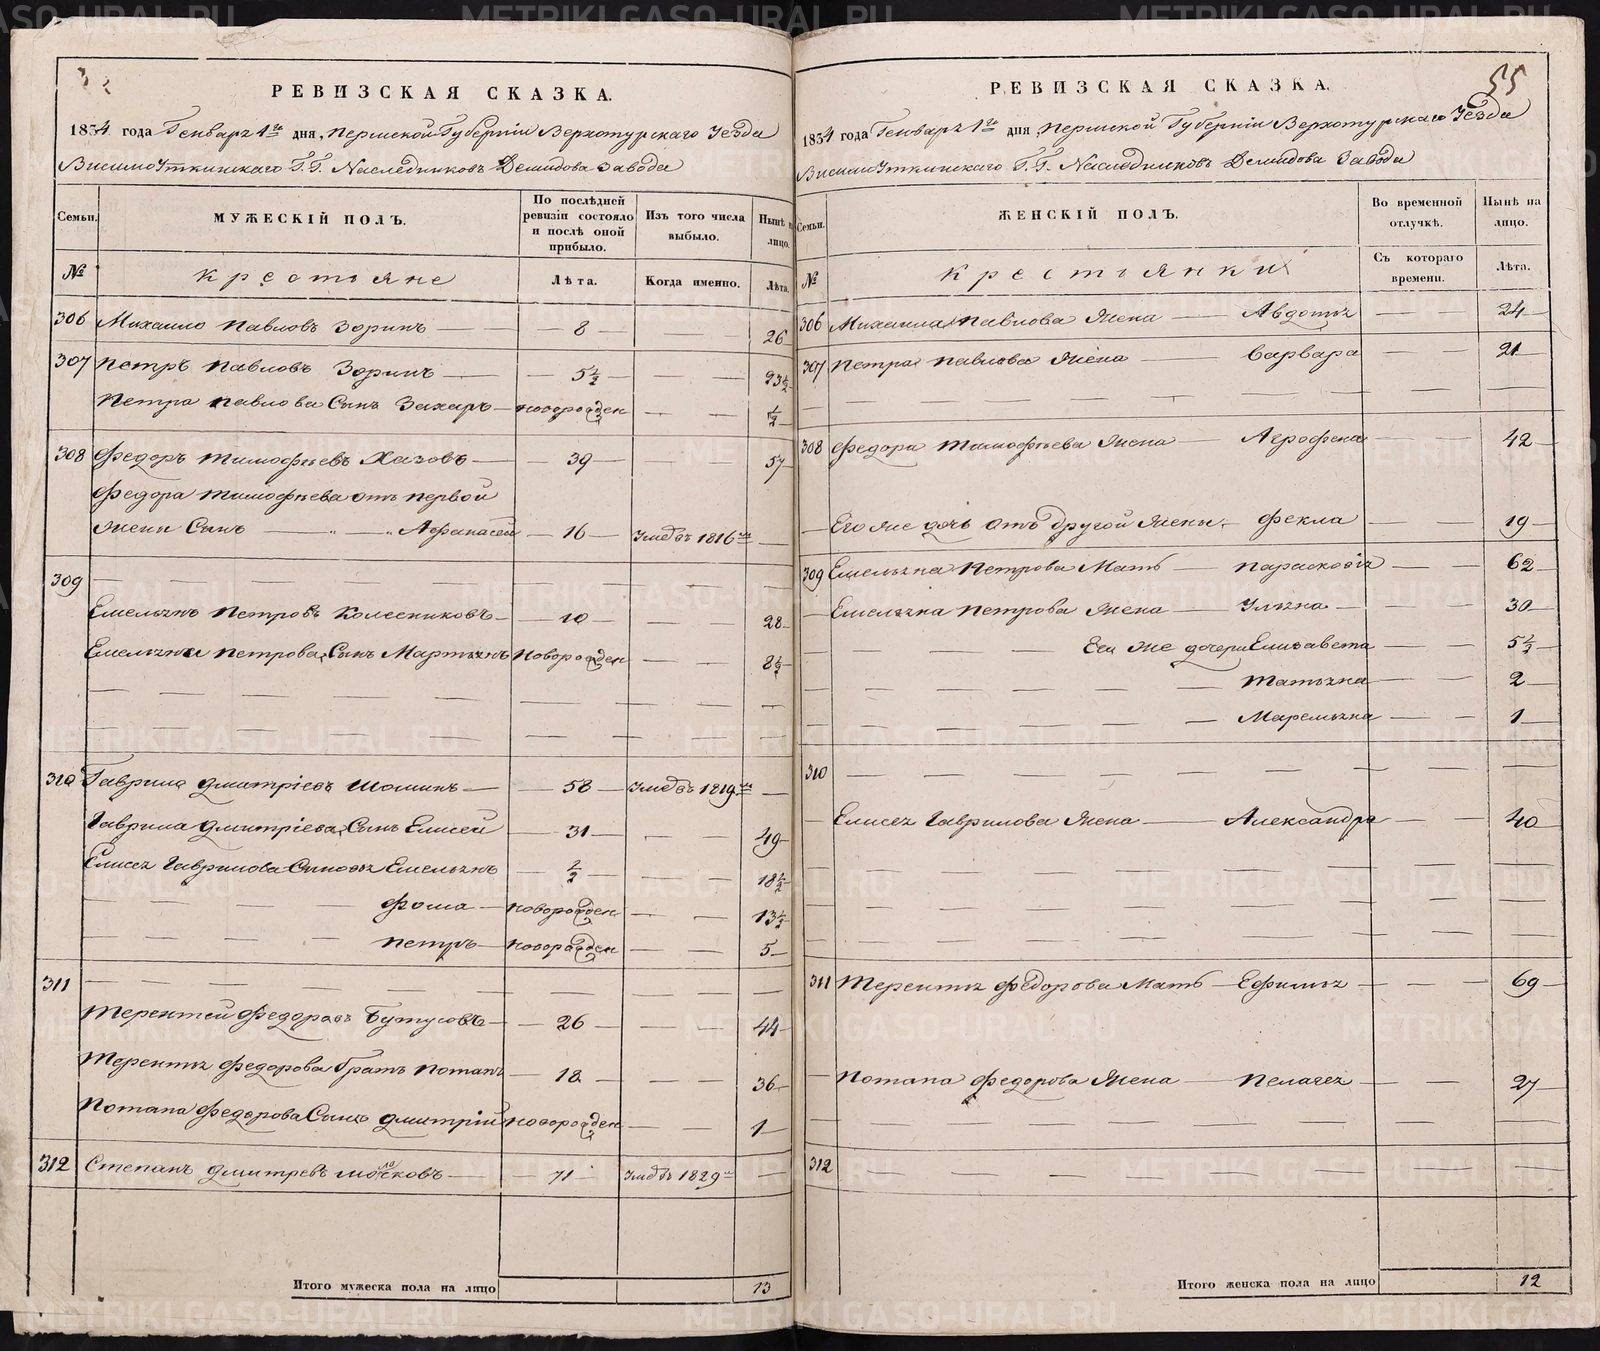 РЕВИЗСКАЯ СКАЗКА.
1834 года Генваря 1го дня, Пермской Губернiи Верхотурскаго Уезда
Висимоуткинскаго Г.Г. Наследниковъ Демидова Завода
Семьи.
МУЖЕСКIЙ ПОЛЪ.
По послѣдней ревизiи состояло и послѣ оной прибыло.
Изъ того числа выбыло.
Нынѣ на лицо.
№ Крестьяне Лѣта. Когда именно. Лѣта.
306 Михаило Павловъ Зоринъ — 8 — — 26
307 Петръ Павловъ Зоринъ — 5½ — — 23½
Петра Павлова Сынъ Захаръ — новорожден — — ½
308 Федоръ Тимофеевъ Хазовъ — 39 — — 57
Федора Тимофеева отъ первой
жены Сынъ — Афанасей — 16 — Умеръ въ 1816м —
309 — — — —
Емельянъ Петровъ Колесниковъ — 10 — — 28
Емельяна Петрова Сынъ Мартынъ Новорожден — — 8½
310 Гаврило Дмитрiевъ Шоминъ — 58 — Умеръ въ 1819м —
Гаврила Дмитрiева Сынъ Елисей — 31 — — 49
Елисея Гаврилова Сыновья Емельянъ — ½ — — 18½
Фома — новорожден — — 13½
Петръ — новорожден — — 5
311 — — — —
Терентей Федоровъ Бутусовъ — 26 — — 44
Терентья Федорова братъ Потапъ — 18 — — 36
Потапа Федорова Сынъ Дмитрiй новорожден — — 1
312 Степанъ Дмитревъ — 71 — Умеръ въ 1829м —
Итого мужеска пола на лицо 13
55
РЕВИЗСКАЯ СКАЗКА.
1834 года Генваря 1го дня Пермской Губернiи Верхотурскаго Уезда
Висимоуткинскаго Г.Г. Наследниковъ Демидова Завода
Семьи.
ЖЕНСКIЙ ПОЛЪ.
Во временной отлучкѣ.
Нынѣ на лицо.
№ Крестьянки Съ котораго времени. Лѣта.
306 Михаила Павлова жена — Авдотья — — 24
307 Петра Павлова жена — Варвара — — 21
308 Федора Тимофеева жена — Аграфена — — 42
Его же дочь отъ другой жены — Фекла — — 19
309 Емельяна Петрова Мать — Парасковiя — — 62
Емельяна Петрова жена — Ульяна — — 30
Его же дочери Елисавета — — 5½
Татьяна — — 2
Маремьяна — — 1
310 — — — —
Елисея Гаврилова жена — Александра — — 40
311 Терентья Федорова Мать — Ефимья — — 69
Потапа Федорова жена — Пелагея — — 27
312 — — — —
Итого женска пола на лицо 12
METRIKI.GASO-URAL.RU